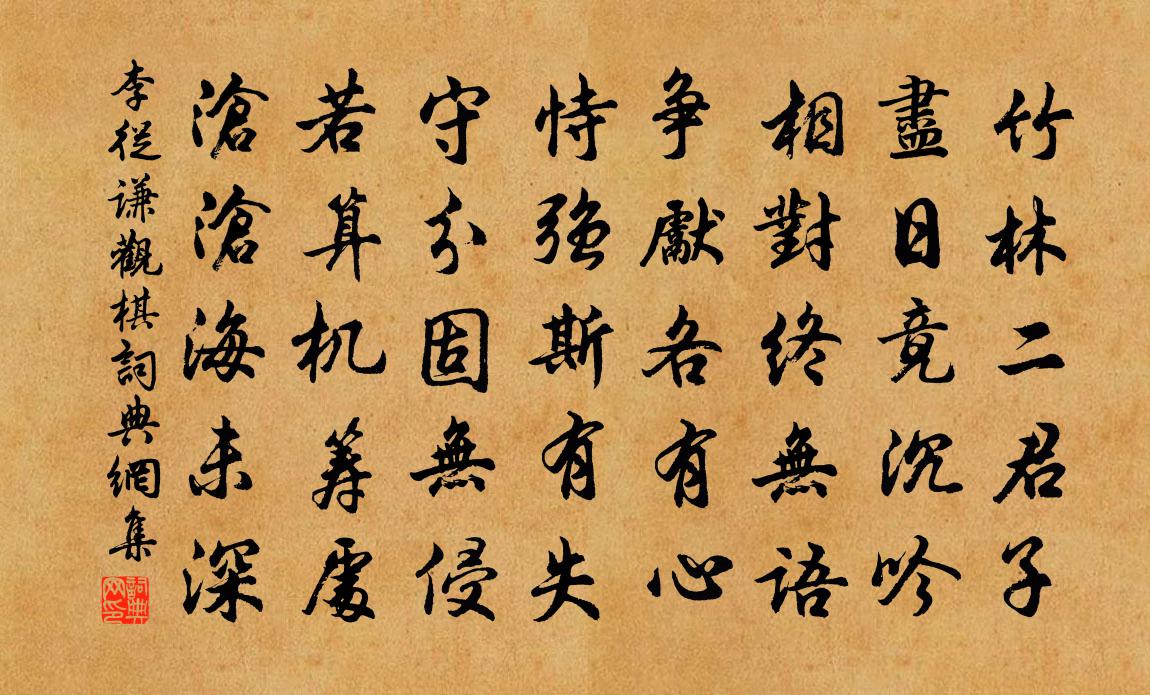 竹林二君子
盡日竟沉吟
相對終無語
争獻各有心
恃強斯有失
守分固無侵
若算机筹處
滄滄海未深
李從謙觀棋詞典網集
詞典网印